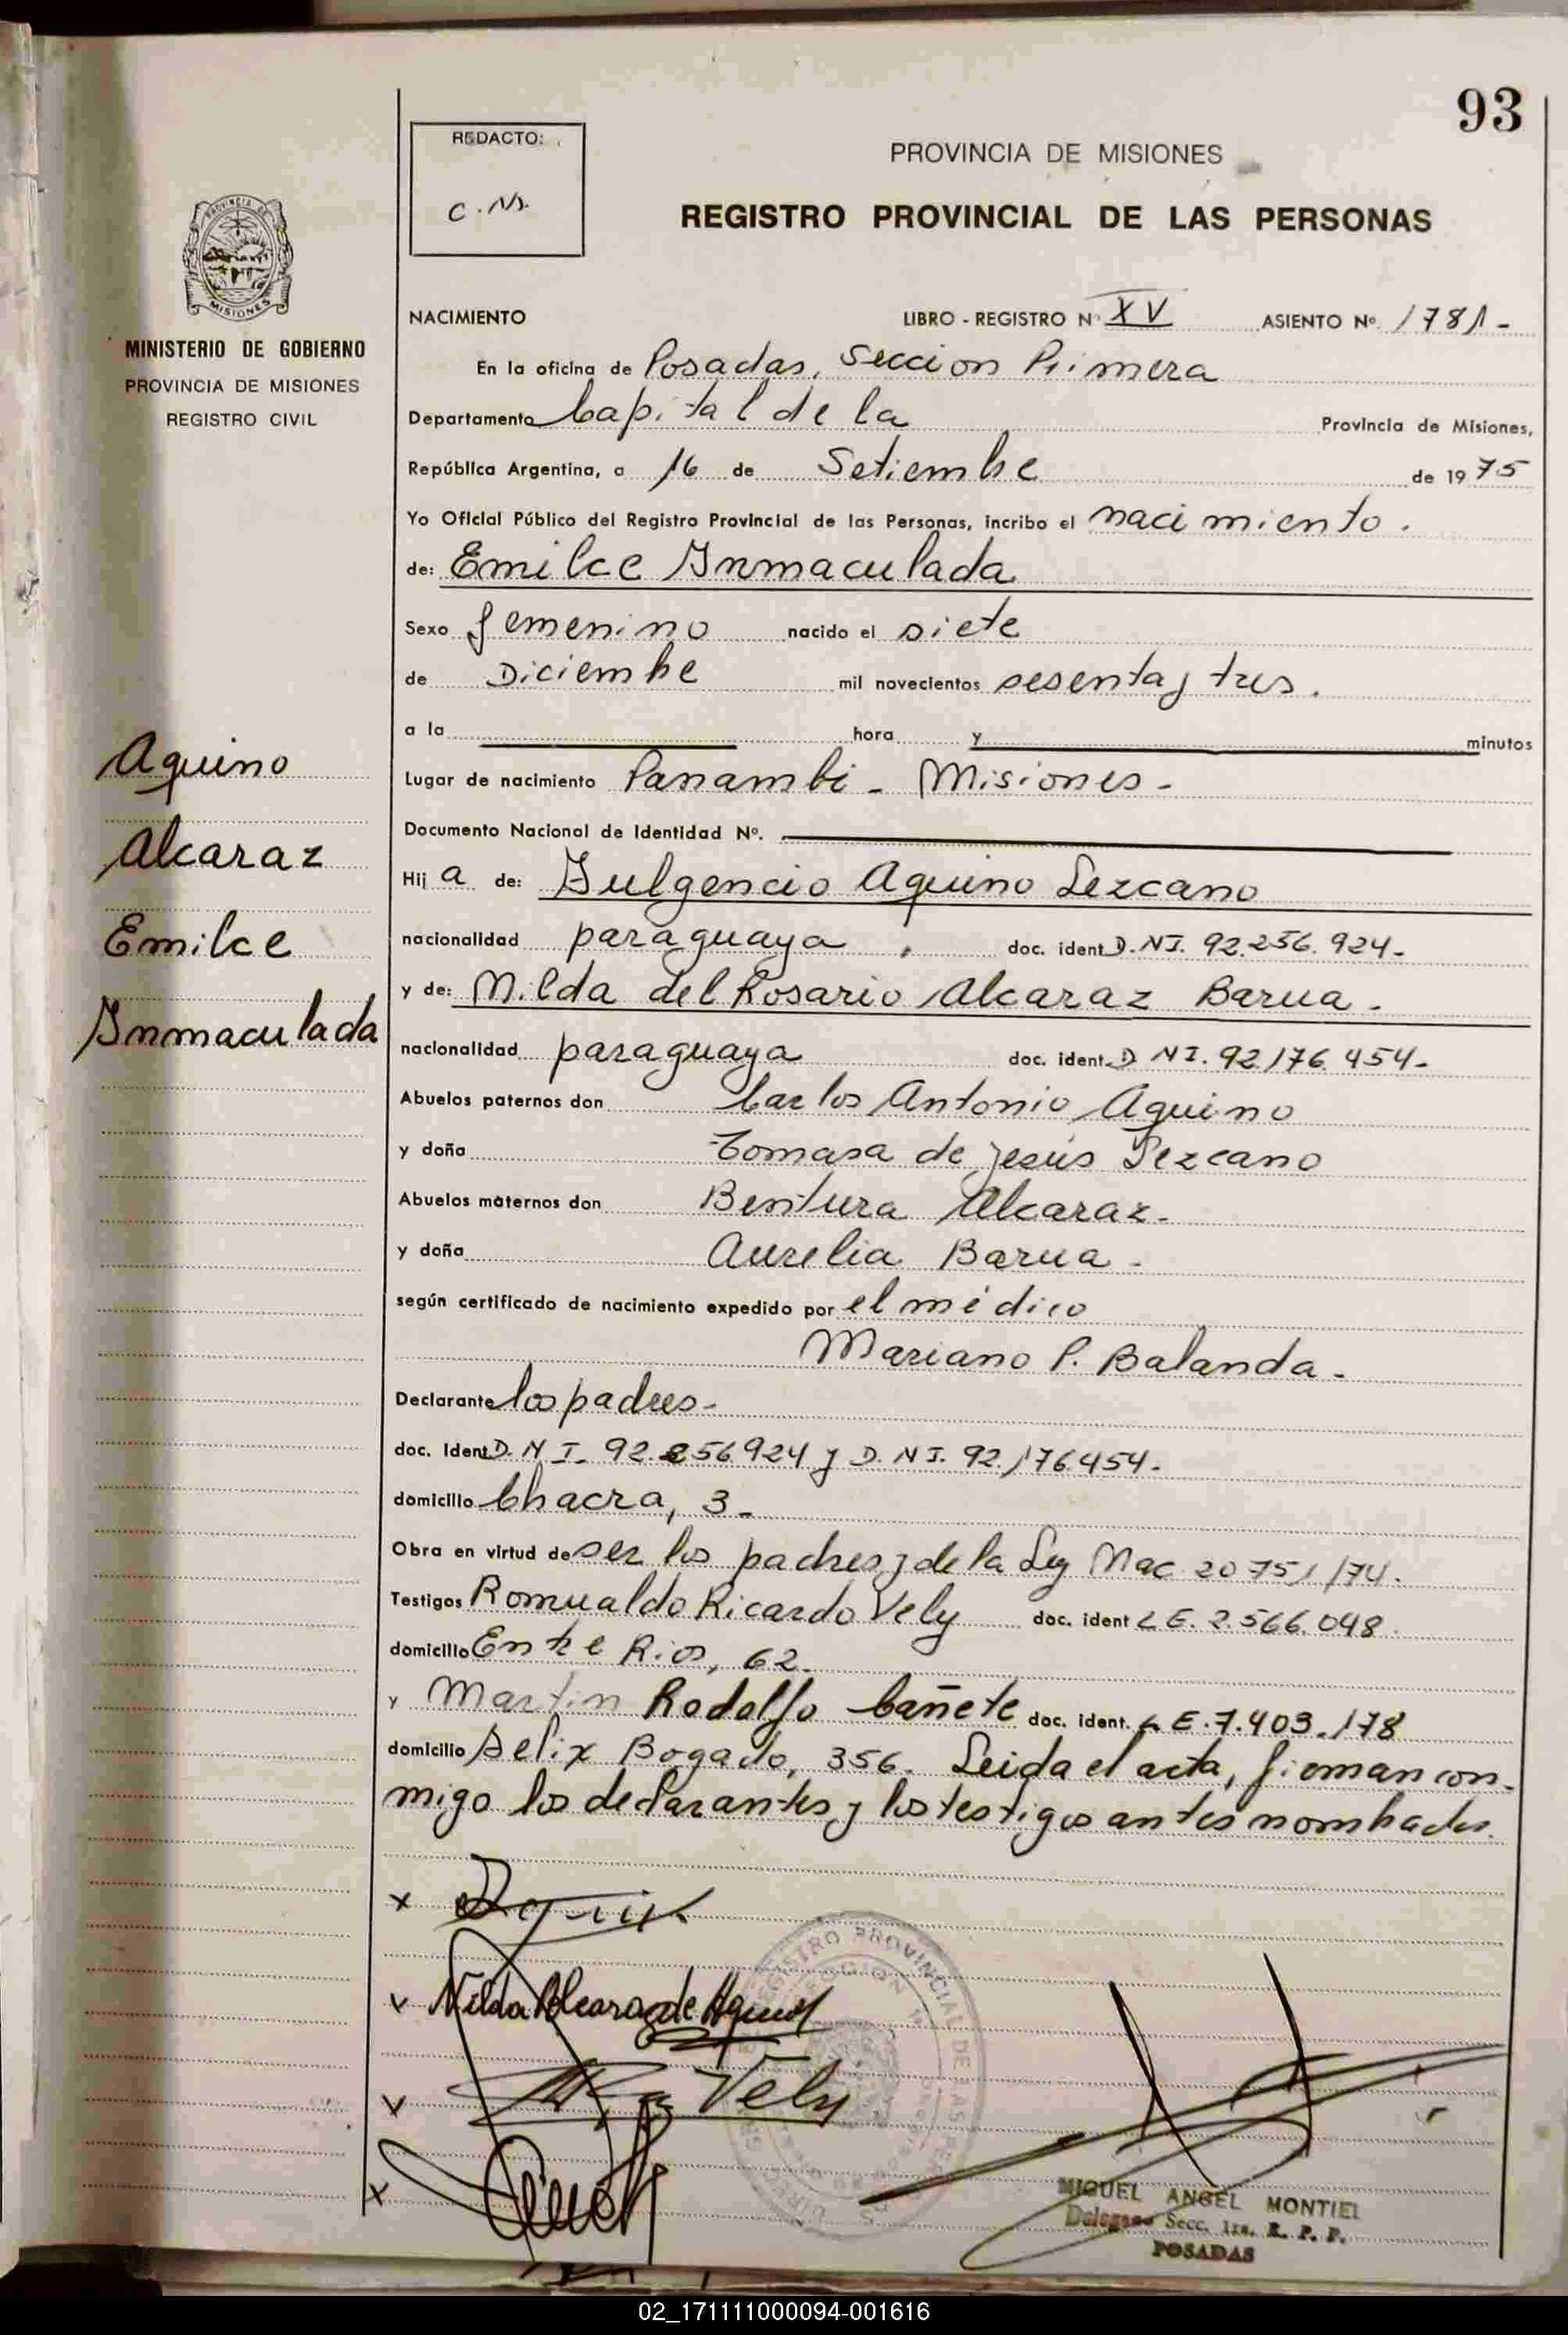 93
REDACTO:
C.N.
PROVINCIA DE MISIONES
REGISTRO PROVINCIAL DE LAS PERSONAS
PROVINCIA DE
MISIONES
MINISTERIO DE GOBIERNO
PROVINCIA DE MISIONES
REGISTRO CIVIL
NACIMIENTO LIBRO - REGISTRO Nº XV ASIENTO Nº 1781-
En la oficina de Posadas, Seccion Primera
Departamento Capital de la Provincia de Misiones,
República Argentina, a 16 de Setiembre de 1975
Yo Oficial Público del Registro Provincial de las Personas, incribo el nacimiento.
de: Emilce Inmaculada
Sexo femenino nacido el siete
de Diciembre mil novecientos sesenta y tres.
a la hora y minutos
Lugar de nacimiento Panambi - Misiones -
Documento Nacional de Identidad Nº.
Hij a de: Fulgencio Aquino Lezcano
nacionalidad paraguaya, doc. ident D.NI. 92.256.924-
y de: Nilda del Rosario Alcaraz Barua -
nacionalidad paraguaya doc. ident. D NI. 92.176.454-
Abuelos paternos don Carlos Antonio Aquino
y doña Tomasa de Jesús Lezcano
Abuelos maternos don Bentura Alcaraz-
y doña Aurelia Barua -
según certificado de nacimiento expedido por el médico
Mariano P. Balanda -
Declarante los padres-
doc. Ident D. N I. 92.256.924 y D. NI. 92.176454-
domicilio Chacra, 3-
Obra en virtud de ser los padres y de la Ley Nac 20751/74.
Testigos Romualdo Ricardo Vely doc. ident L E. 2.566.048.
domicilio Entre Rios, 62.
y Martin Rodolfo Cañete doc. ident. L E. 7.403.178
domicilio Felix Bogado, 356. Leida el acta, firman con-
migo los declarantes y los testigos antes nombrados.
Aquino
Alcaraz
Emilce
Inmaculada
x
v Nilda Alcaraz de Aquino
v Vely
x
REGISTRO PROVINCIAL DE LAS PERSONAS
SECCION 1ª
MIGUEL ANGEL MONTIEL
Delegado Secc. 1ra. R. P. P.
POSADAS
02_171111000094-001616